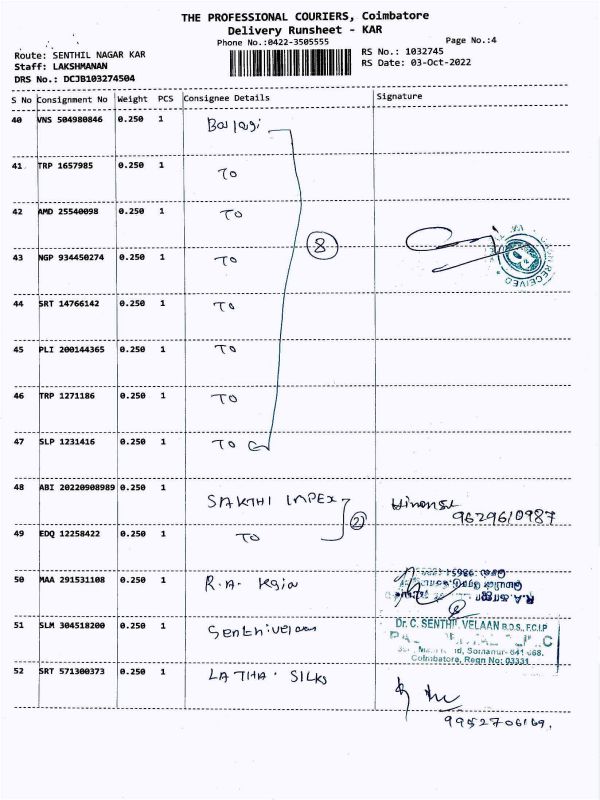 THE PROFESSIONAL COURIERS, Coimbatore
Delivery Runsheet - KAR
Phone No.:0422-3505555
Page No.:4
Route: SENTHIL NAGAR KAR
Staff: LAKSHMANAN
DRS No.: DCJB103274504
RS No.: 1032745
RS Date: 03-Oct-2022
S No Consignment No Weight PCS Consignee Details Signature
40 VNS 504980846 0.250 1 Balaji
41 TRP 1657985 0.250 1 TO
42 AMD 25540098 0.250 1 TO
8
43 NGP 934450274 0.250 1 TO
RECEIVED
44 SRT 14766142 0.250 1 TO
45 PLI 200144365 0.250 1 TO
46 TRP 1271186 0.250 1 TO
47 SLP 1231416 0.250 1 TO
48 ABI 20220908989 0.250 1 SAKTHI IMPEX
9629610987
2
49 EDQ 12258422 0.250 1 TO
50 MAA 291531108 0.250 1 R.A.
51 SLM 304518200 0.250 1 Senthivelaan
Dr. C. SENTHIL VELAAN B.D.S., F.C.I.P
Somanur-641 668.
Coimbatore, Regn No: 03331
52 SRT 571300373 0.250 1 LATHA SILKS
9952706169.